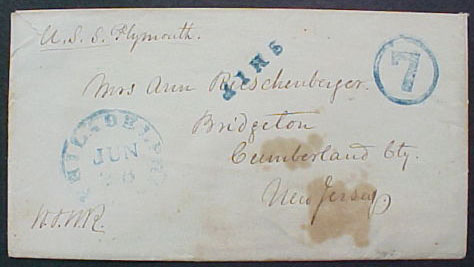 U.S.S. Plymouth.
SHIP
7
Mrs Ann Ruschenberger.
Bridgeton
Cumberland Cty.
New Jersey
PHILADELPHIA
JUN
W.S.W.R.